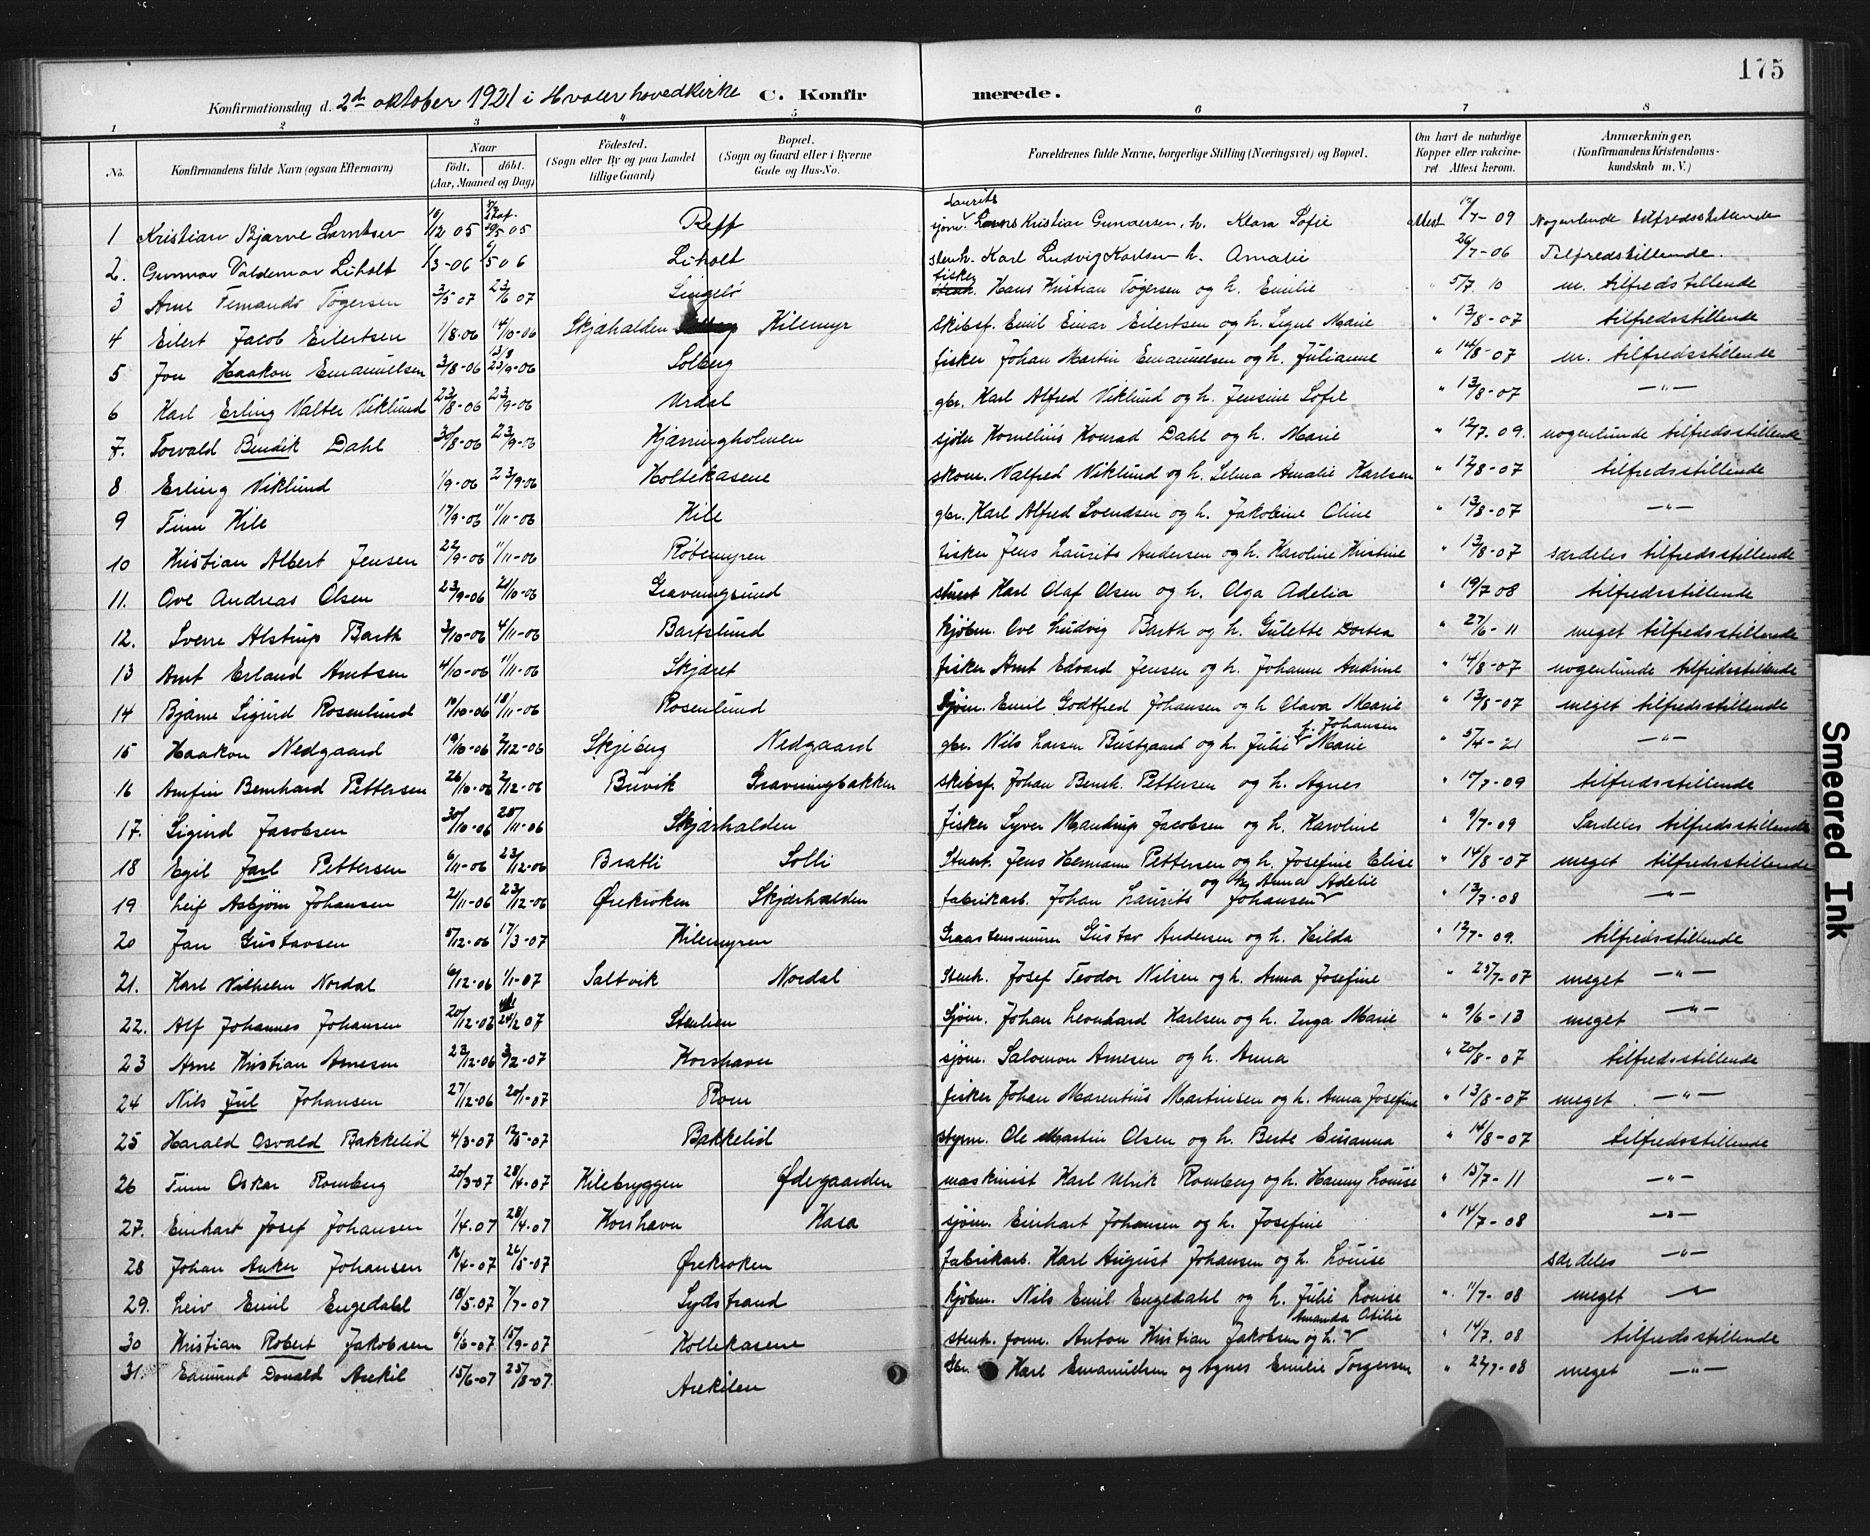 175
Konfirmationsdag d. 2d oktober 1921 i Hvaler hovedkirke C. Konfirmerede.
1 2 3 4 5 6 7 8
No. Konfirmandens fulde Navn (ogsaa Efternavn) Naar födt. döbt. (Aar, Maaned og Dag) Födested. (Sogn eller By og paa Landet tillige Gaard) Bopæl. (Sogn og Gaard eller i Byerne Gade og Hus-No. Forældrenes fulde Navne, borgerlige Stilling (Næringsvei) og Bopæl. Om havt de naturlige Kopper eller vakcineret. Attest herom. Anmærkninger. (Konfirmandens Kristendomskundskab m. V.)
1 Kristian Bjarne 12 05 Reff Laurits Kristian Gundersen, h. Klara Sofie Attest 7-09 Nogenlunde tilfredsstillende
2. Gunnar Valdemar Liholt 1/3-06 Liholt stenh. Karl Ludvig Karlsen h. Amalie 26/7-06 Tilfredstillende.
3 Arne Fernando Tögersen 3/5 07 23/6 07 Singelö fisker Hans Kristian Tögersen og h. Emilie " 5/7. 10 m. tilfredstillende
4 Eilert Jacob Eilertsen 1/8-06 14/10-06 Skjæhalden Kilemyr Skibsf. Emil Einar Eilertsen og h. Signe Marie " 13/8-07 tilfredsstillende
5 Jon Haakon Emanuelsen 3/8-06 23/9-06 Solberg fisker Johan Martin Emanuelsen og h. Julianne " 14/8-07 m. tilfredsstillende
6 Karl Erling Valter Viklund 23/8-06 23/9-06 Urdal gbr. Karl Alfred Viklund og h. Jensine Sofie " 13/8-07 -"-
7. Torvald Bendik Dahl 30/8-06 23/9-06 Kjærringholmen sjöm Kornelius Konrad Dahl og h. Marie " 12/7. 09. nogenlunde tilfredsstillende
8 Erling Viklund 1/9-06 23/9-06 Holtekasene skom. Valfred Viklund og h. Selma Amalie Karlsen " 12/8-07 tilfredsstillende
9 Finn Kile 17/9-06 11/11-06 Kile gbr. Karl Alfred Svendsen og h. Jakobine Oline " 13/8-07 -"-
10 Kristian Albert Jensen 22/9-06 11/11-06 Röbemyren fisker Jens Laurits Andersen og h. Karoline Kristine " 13/8-07 særdeles tilfredsstillende
11. Ove Andreas Olsen 23/9-06 21/10-06 Gravningsund Karl Olaf Olsen og h. Olga Adelia " 19/7 08 tilfredsstillende
12. Sverre Alstrup Barth 3/10-06 4/11-06 Bartslund kjöbm. Ove Ludvig Barth og h. Gulette Dortea " 27/6-11 meget tilfredsstillende
13 Arnt Erland Arntsen 4/10-06 11/11-06 Skjæret fisker Arnt Edvard Jensen og h. Johanne Andrine " 14/8-07 nogenlunde tilfredsstillende
14 Bjarne Sigurd Rosenlund 10/10-06 18/11-06 Rosenlund Sjöm. Emil Godtfred Johansen og h Olava Marie " 13/8-07 meget tilfredsstillende
15 Haakon Nedgaard 19/10-06 2/12-06 Skjeberg Nedgaard gbr. Nils Larsen Bustgaard og h. Julie Marie f. Johansen " 5/4-21 -"-
16 Arnfin Bernhard Pettersen 26/10-06 2/12-06 Buvik Gravningbakken skibsf. Johan Bernh. Pettersen og h. Agnes " 15/7-09 tilfredsstillende
17. Sigurd Jacobsen 30/10-06 25/11-06 Skjærhalden fisker Syver Mandrup Jacobsen og h. Karoline " 9/7-09 Særdeles tilfredsstillende
18 Egil Jarl Pettersen 6/11-06 23/12-06 Bratli Solli Jens Hermann Pettersen og h. Josefine Elise " 14/8-07 meget tilfredsstillende
19 Leif Asbjörn Johansen 21/11-06 23/12-06 Örekroken Skjærhalden fabrikarb. Johan Laurits Johansen og h. Anna Adelie " 13/7-08 -"-
20 Jan Gustavsen 5/12-06 17/3-07 Kilemyren Graastensmurer Gustav Andersen og h. Hilda " 12/7-09. tilfredsstillende
21. Karl Vilhelm Nordal 6/12-06 1/1-07 Saltvik Nordal Stenh. Josef Teodor Nilsen og h. Anna Josefine " 23/7-07 meget -"-
22. Alf Johannes Johansen 20/12-06 24/2 07 Stenlien Sjöm. Johan Leonhard Karlsen og h. Inga Marie " 9/6-13 meget -"-
23 Arne Kristian Arnesen 23/12-06 3/2-07 Korshavn sjöm. Salomon Arnesen og h. Anna " 20/8-07 tilfredsstillende
24 Nils Jul Johansen 27/12-06 20/1-07 Rom fisker Johan Marentius Martinsen og h. Anna Josefine " 13/8-07 meget -"-
25 Harald Osvald Bakkelid 4/3-07 12/5-07 Bakkelid styrm. Ole Martin Olsen og h. Berte Susanna " 14/8-07 tilfredsstillende
26 Finn Oskar Romberg 20/3-07 28/4-07 Kilebryggen Ödegaarden maskinist Karl Ulrik Romberg og h. Hanny Louise " 15/7-11 -"-
27. Einhart Josef Johansen 1/4-07 28/4-07 Korshavn Kasa sjöm. Einhart Johansen og h. Josefine " 14/7-08 -"-
28 Johan Anker Johansen 16/4-07 26/5-07 Örekroken Fabrikarb. Karl August Johansen og h. Louise særdeles -"-
29. Leiv Emil Engedahl 18/5-07 7/7-07 Sydstrand kjöbm. Nils Emil Engedahl og h. Julie Louise " 11/7-08 meget -"-
30 Kristian Robert Jakobsen 6/6-07 15/9-07 Holtekasene stenh. form. Anton Kristian Jakobsen og h. Amanda Otilie " 14/7. 08 tilfredsstillende
31. Edmund Donald Arekil 15/6-07 25/8-07. Arekilen Gbr. Karl Emanuelsen og Agnes Emilie Torgersen " 22/7-08 meget -"-
Smeared Ink